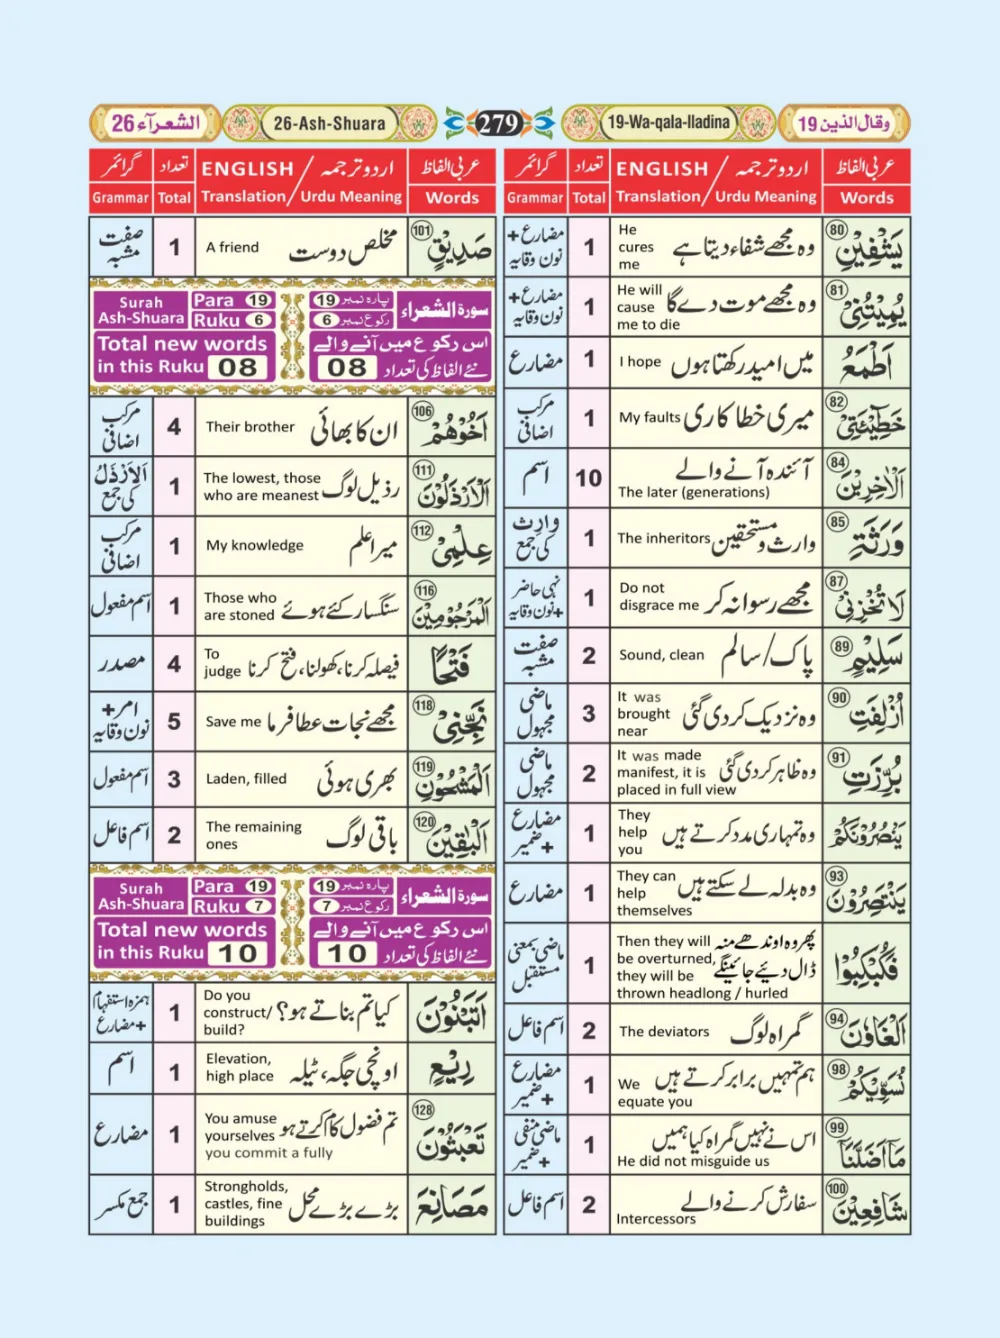 وقال الذين 19
19-Wa-qala-lladina
279
26-Ash-Shuara
الشعرآء 26
عربی الفاظ Words
اردو ترجمہ / ENGLISH
Translation / Urdu Meaning
تعداد Total
گرائمر Grammar
80 يَشْفِيْنِ وہ مجھے شفاء دیتا ہے He cures me 1 مضارع + نون وقایہ
81 يُمِيْتُنِيْ وہ مجھے موت دے گا He will cause me to die 1 مضارع + نون وقایہ
اَطْمَعُ میں امید رکھتا ہوں I hope 1 مضارع
82 خَطِيْٓئَتِيْ میری خطا کاری My faults 1 مرکب اضافی
84 الْاٰخِرِيْنَ آئندہ آنے والے The later (generations) 10 اسم
85 وَرَثَةِ وارث و مستحقین The inheritors 1 وارث کی جمع
87 لَا تُخْزِنِيْ مجھے رسوا نہ کر Do not disgrace me 1 نہی حاضر +نون وقایہ
89 سَلِيْمٍ پاک/سالم Sound, clean 2 صفت مشبہ
90 اُزْلِفَتِ وہ نزدیک کر دی گئی It was brought near 3 ماضی مجہول
91 بُرِّزَتِ وہ ظاہر کر دی گئی It was made manifest, it is placed in full view 2 ماضی مجہول
يَنْصُرُوْنَكُمْ وہ تمہاری مدد کرتے ہیں They help you 1 مضارع +ضمیر
93 يَنْتَصِرُوْنَ وہ بدلہ لے سکتے ہیں They can help themselves 1 مضارع
فَكُبْكِبُوْا پھر وہ اوندھے منہ ڈال دیئے جائینگے Then they will be overturned, they will be thrown headlong / hurled 1 ماضی بمعنی مستقبل
94 الْغَاوٗنَ گمراہ لوگ The deviators 2 اسم فاعل
98 نُسَوِّيْكُمْ ہم تمہیں برابر کرتے ہیں We equate you 1 مضارع +ضمیر
99 مَآ اَضَلَّنَآ اس نے نہیں گمراہ کیا ہمیں He did not misguide us 1 ماضی منفی +ضمیر
100 شَافِعِيْنَ سفارش کرنے والے Intercessors 2 اسم فاعل
عربی الفاظ Words
اردو ترجمہ / ENGLISH
Translation / Urdu Meaning
تعداد Total
گرائمر Grammar
101 صَدِيْقٍ مخلص دوست A friend 1 صفت مشبہ
Surah Ash-Shuara Para 19 Ruku 6
سورة الشعراء پارہ نمبر 19 رکوع نمبر 6
Total new words in this Ruku 08
اس رکوع میں آنے والے نئے الفاظ کی تعداد 08
106 اَخُوْهُمْ ان کا بھائی Their brother 4 مرکب اضافی
111 الْاَرْذَلُوْنَ رذیل لوگ The lowest, those who are meanest 1 اَلْاَرْذَلُ کی جمع
112 عِلْمِيْ میرا علم My knowledge 1 مرکب اضافی
116 الْمَرْجُوْمِيْنَ سنگسار کئے ہوئے Those who are stoned 1 اسم مفعول
فَتْحًا فیصلہ کرنا، کھولنا، فتح کرنا To judge 4 مصدر
118 نَجِّنِيْ مجھے نجات عطا فرما Save me 5 امر + نون وقایہ
119 الْمَشْحُوْنِ بھری ہوئی Laden, filled 3 اسم مفعول
120 الْبٰقِيْنَ باقی لوگ The remaining ones 2 اسم فاعل
Surah Ash-Shuara Para 19 Ruku 7
سورة الشعراء پارہ نمبر 19 رکوع نمبر 7
Total new words in this Ruku 10
اس رکوع میں آنے والے نئے الفاظ کی تعداد 10
اَتَبْنُوْنَ کیا تم بناتے ہو؟ Do you construct/ build? 1 ہمزہ استفہام +مضارع
رِيْعٍ اونچی جگہ، ٹیلہ Elevation, high place 1 اسم
128 تَعْبَثُوْنَ تم فضول کام کرتے ہو You amuse yourselves you commit a fully 1 مضارع
مَصَانِعَ بڑے بڑے محل Strongholds, castles, fine buildings 1 جمع مکسر